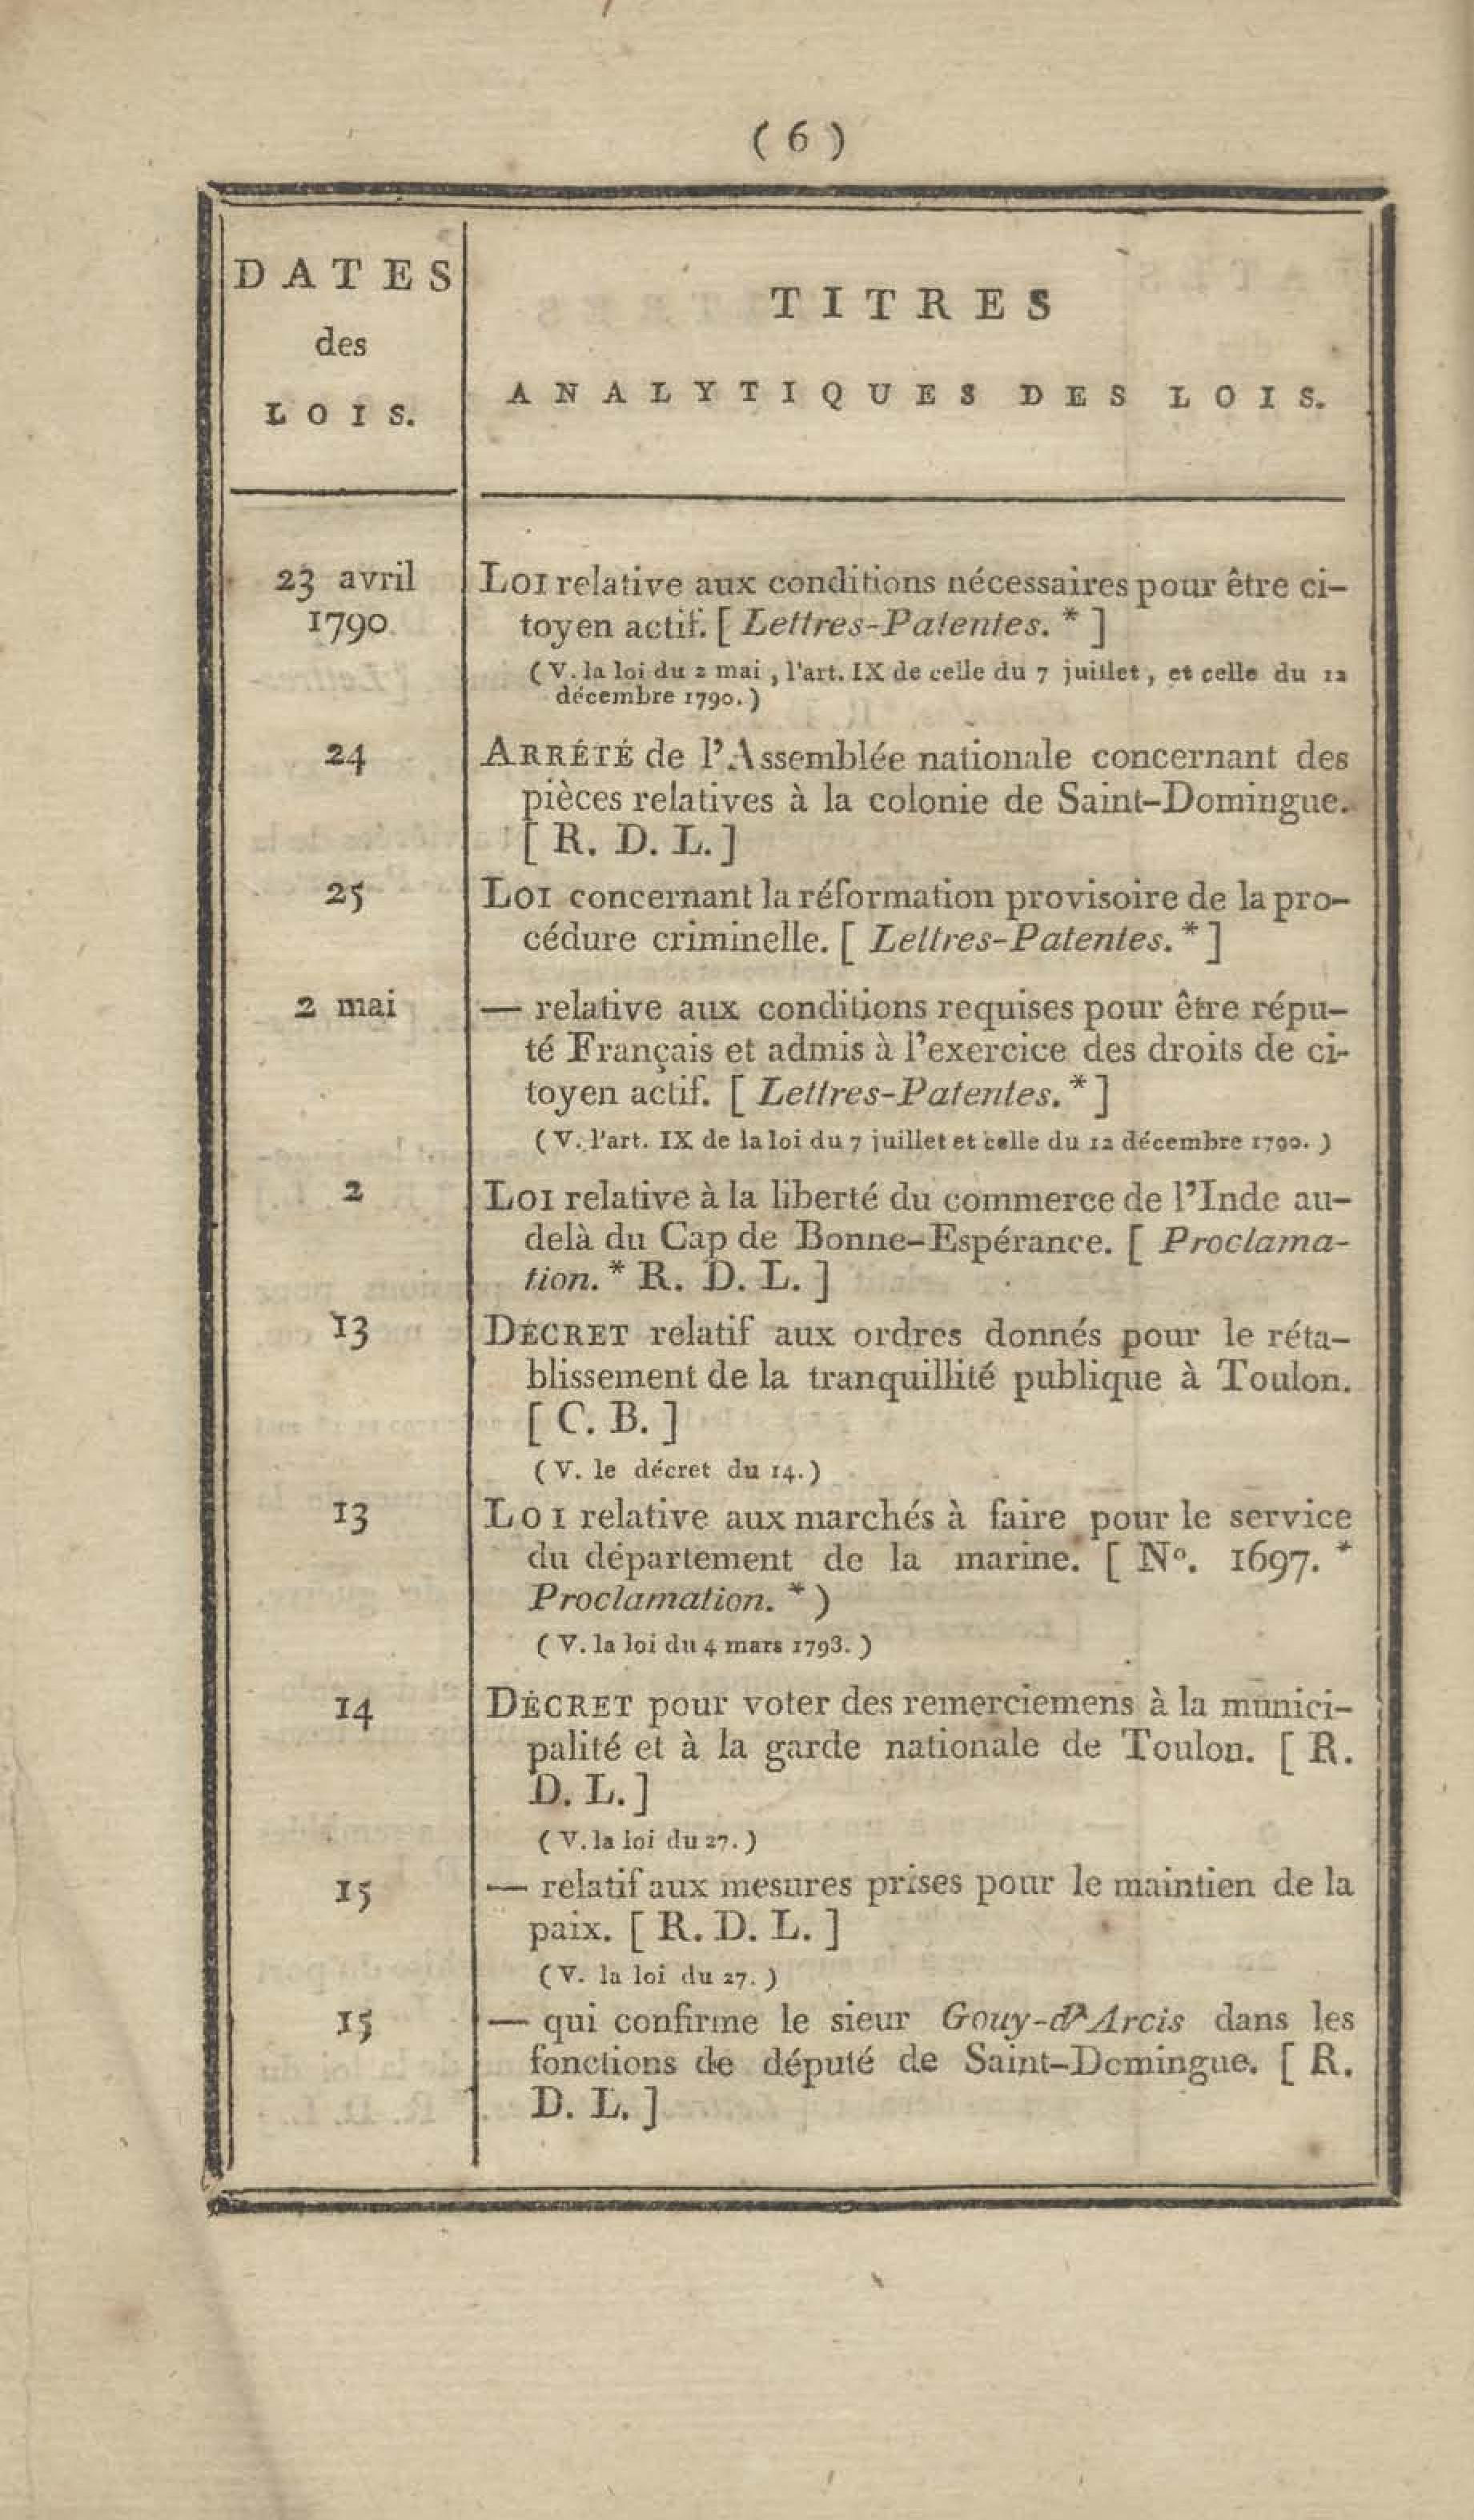 ( 6 )
DATES
des
LOIS.
TITRES
ANALYTIQUES DES LOIS.
23 avril
1790.
LOI relative aux conditions nécessaires pour être ci-
toyen actif. [ Lettres-Patentes. * ]
( V. la loi du 2 mai , l'art. IX de celle du 7 juillet , et celle du 12
décembre 1790. )
24
ARRÊTÉ de l'Assemblée nationale concernant des
pièces relatives à la colonie de Saint-Domingue.
[ R. D. L. ]
25
LOI concernant la réformation provisoire de la pro-
cédure criminelle. [ Lettres-Patentes. * ]
2 mai
— relative aux conditions requises pour être répu-
té Français et admis à l'exercice des droits de ci-
toyen actif. [ Lettres-Patentes. * ]
( V. l'art. IX de la loi du 7 juillet et celle du 12 décembre 1790. )
2
LOI relative à la liberté du commerce de l'Inde au-
delà du Cap de Bonne-Espérance. [ Proclama-
tion. * R. D. L. ]
13
DÉCRET relatif aux ordres donnés pour le réta-
blissement de la tranquillité publique à Toulon.
[ C. B. ]
( V. le décret du 14. )
13
LOI relative aux marchés à faire pour le service
du département de la marine. [ N°. 1697. *
Proclamation. * )
( V. la loi du 4 mars 1793. )
14
DÉCRET pour voter des remerciemens à la munici-
palité et à la garde nationale de Toulon. [ R.
D. L. ]
( V. la loi du 27. )
15
— relatif aux mesures prises pour le maintien de la
paix. [ R. D. L. ]
( V. la loi du 27. )
15
— qui confirme le sieur Gouy-d'Arcis dans les
fonctions de député de Saint-Domingue. [ R.
D. L. ]